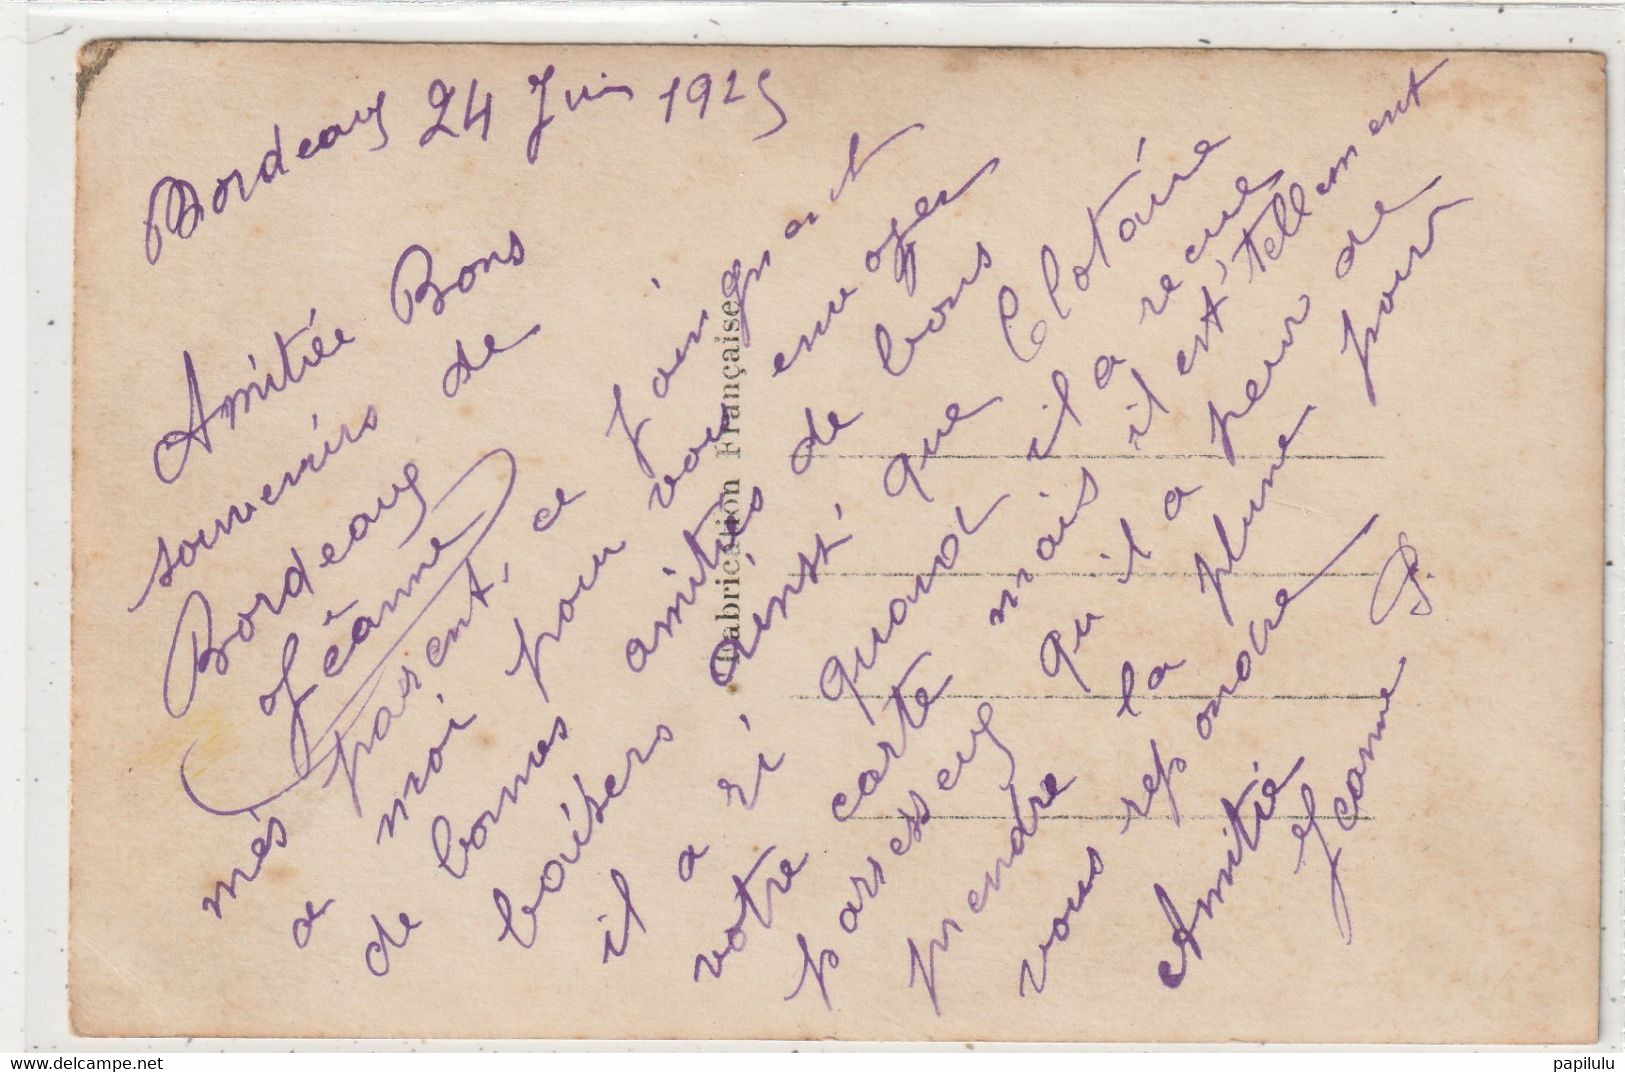 Bordeaux 24 Juin 1925
Amitiée Bons
souvenirs de
Bordeaux
Jéanne
més parent, ce joingnent
a moi pour vous envoyer
de bonnes amities de bons
baisérs ainssi que Clotáire
il a ri quand il a recue
votre carte mais il est tellement
paresseux qu il a peur de
prendre la plume pour
vous repondre
Amitié
Jeanne P.
Fabrication Française
papilulu